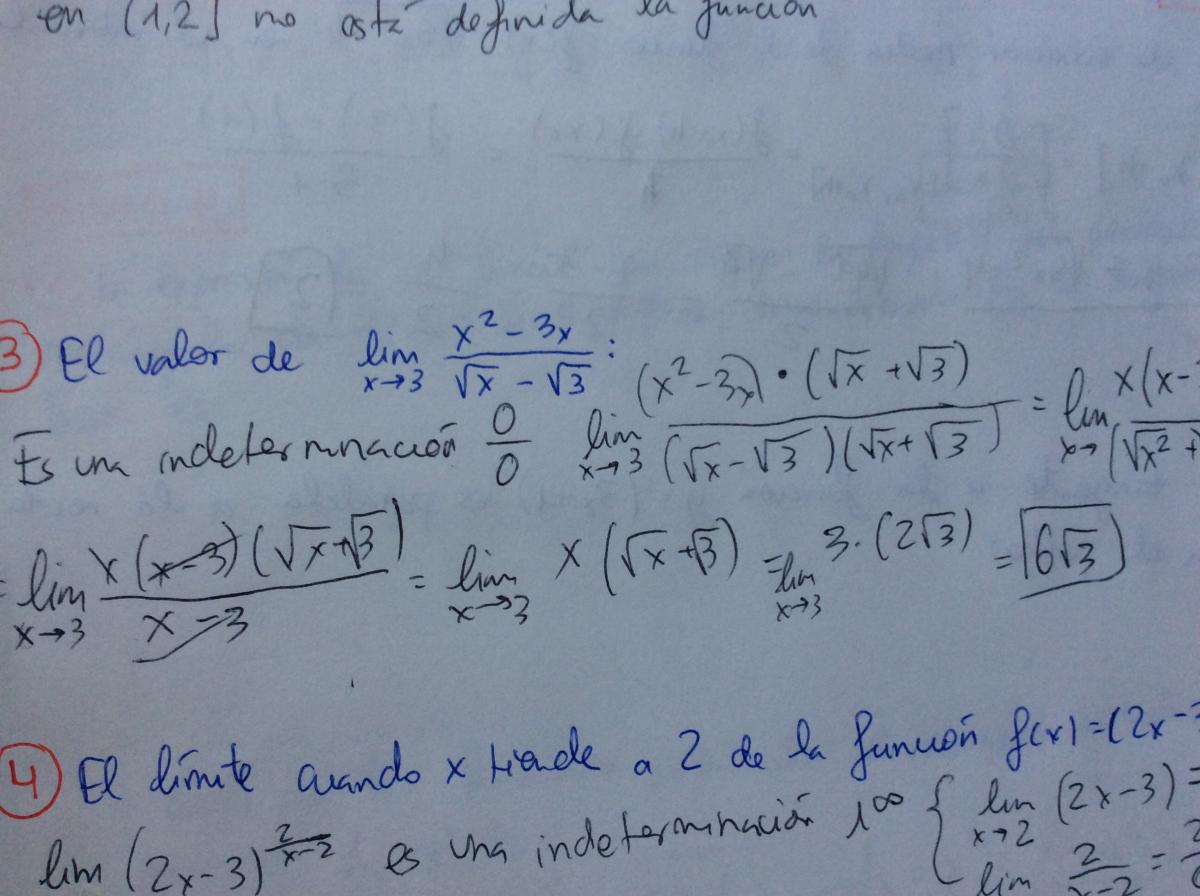 en (1,2] no está definida la función
3) El valor de lim x→3 (x² - 3x)/(√x - √3) :
Es una indeterminación 0/0 lim x→3 ((x² - 3x) · (√x + √3))/((√x - √3)(√x + √3)) = lim x→ (x(x-)/((√x² +
= lim x→3 (x(x-3)(√x+√3))/(x-3) = lim x→3 x(√x+√3) = lim x→3 3·(2√3) = 6√3
4) El límite cuando x tiende a 2 de la función f(x)=(2x-3
lim (2x-3)^(2/(x-2)) es una indeterminación 1^∞ { lim x→2 (2x-3) =
lim 2/(x-2) = 2/